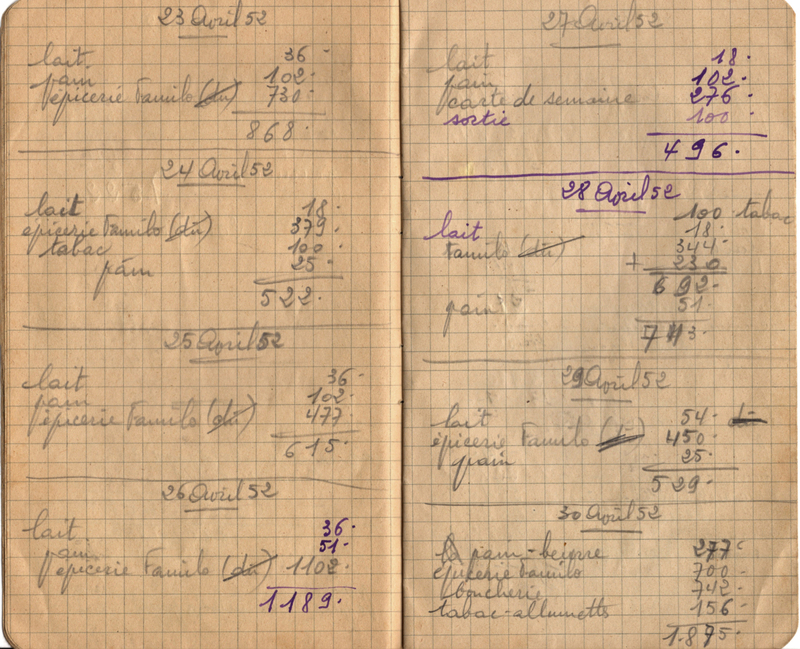 23 Avril 52
lait. 36-
pain 102-
épicerie Familo (dû) 730-
868.
24 Avril 52
lait 18-
épicerie Familo (dû) 379-
tabac 100-
pain 25-
522.
25 Avril 52
lait 36-
pain 102-
épicerie Familo (dû) 477-
615-
26 Avril 52
lait. 36-
pain 51-
épicerie Familo (dû) 1102-
1189.
27 Avril 52
lait 18.
pain 102.
carte de semaine 276.
sortie 100.
496.
28 Avril 52
100 tabac
lait 18.
Familo (dû) 344-
+ 230
692.
pain 51-
743.
29 Avril 52
lait 54-
épicerie Familo 450-
pain 25-
529-
30 Avril 52
pain - beurre 277
épicerie Familo 700-
boucherie 742-
tabac-allumettes 156-
1.875-